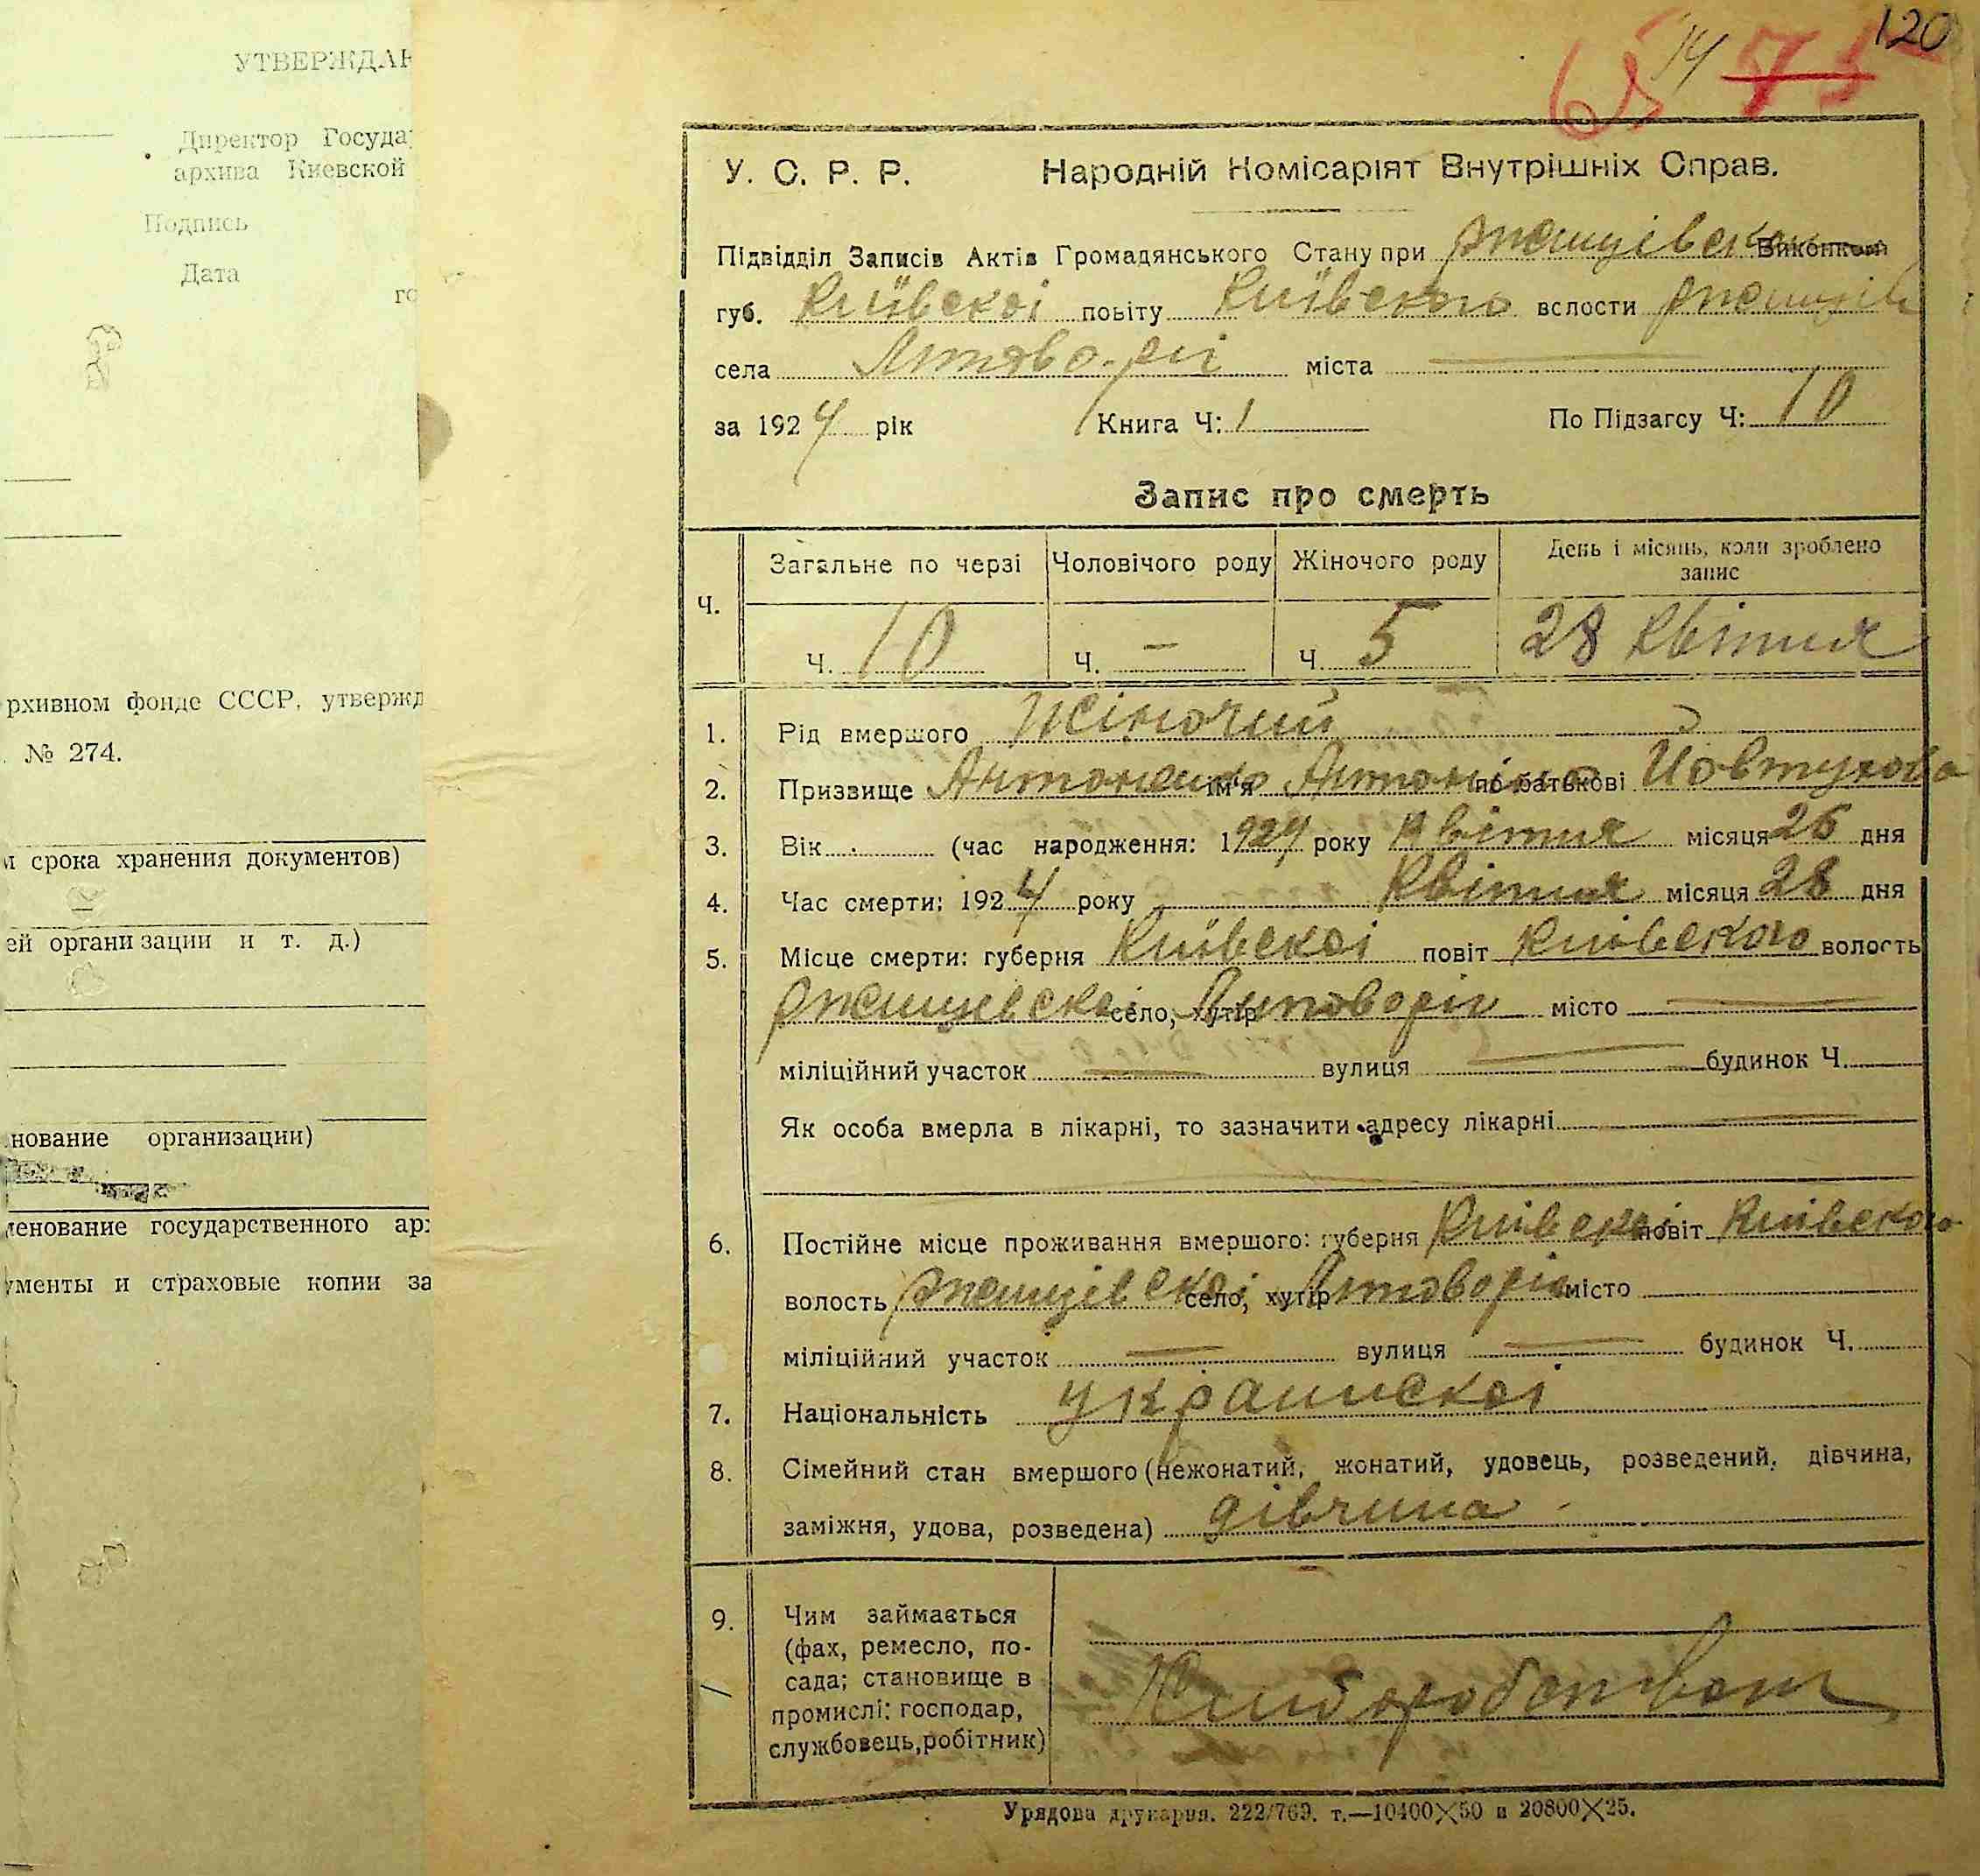 120
14
65 75
УТВЕРЖДАН
Директор Госуда
архива Киевской
Подпись
Дата
го
рхивном фонде СССР, утвержд
. № 274.
и срока хранения документов)
ей организации и т. д.)
нование организации)
менование государственного арх
ументы и страховые копии за
У. С. Р. Р. Народній Комісаріят Внутрішніх Справ.
Підвідділ Записів Актів Громадянського Стану при Ржищівском Виконком
губ. Київскоі повіту Київского вслости Ржищів
села міста
за 1924 рік Книга Ч: 1 По Підзагсу Ч: 10
Запис про смерть
Ч. Загальне по черзі Чоловічого роду Жіночого роду День і місянь, коли зроблено
запис
Ч. 10 Ч. — Ч 5 28 Квітня
1. Рід вмершого Жіночий
2. Призвище Антоненко ім'я Антоніна по батькові Йовтухова
3. Вік (час народження: 1924 року Квітня місяця 26 дня
4. Час смерти: 1924 року Квітня місяця 28 дня
5. Місце смерти: губерня Київскоі повіт Київского волость
Ржищівскоі село, хутір місто
міліційний участок вулиця будинок Ч.
Як особа вмерла в лікарні, то зазначити адресу лікарні
6. Постійне місце проживання вмершого: губерня Київскоі повіт Київского
волость Ржищівскоі село, хутір місто
міліційний участок вулиця будинок Ч.
7. Національність Украинскоі
8. Сімейний стан вмершого (нежонатий, жонатий, удовець, розведений, дівчина,
заміжня, удова, розведена) дівчина
9. Чим займається
(фах, ремесло, по-
сада; становище в
промислі: господар,
службовець, робітник)
Урядова друкарня. 222/769. т.—10400X50 и 20800X25.